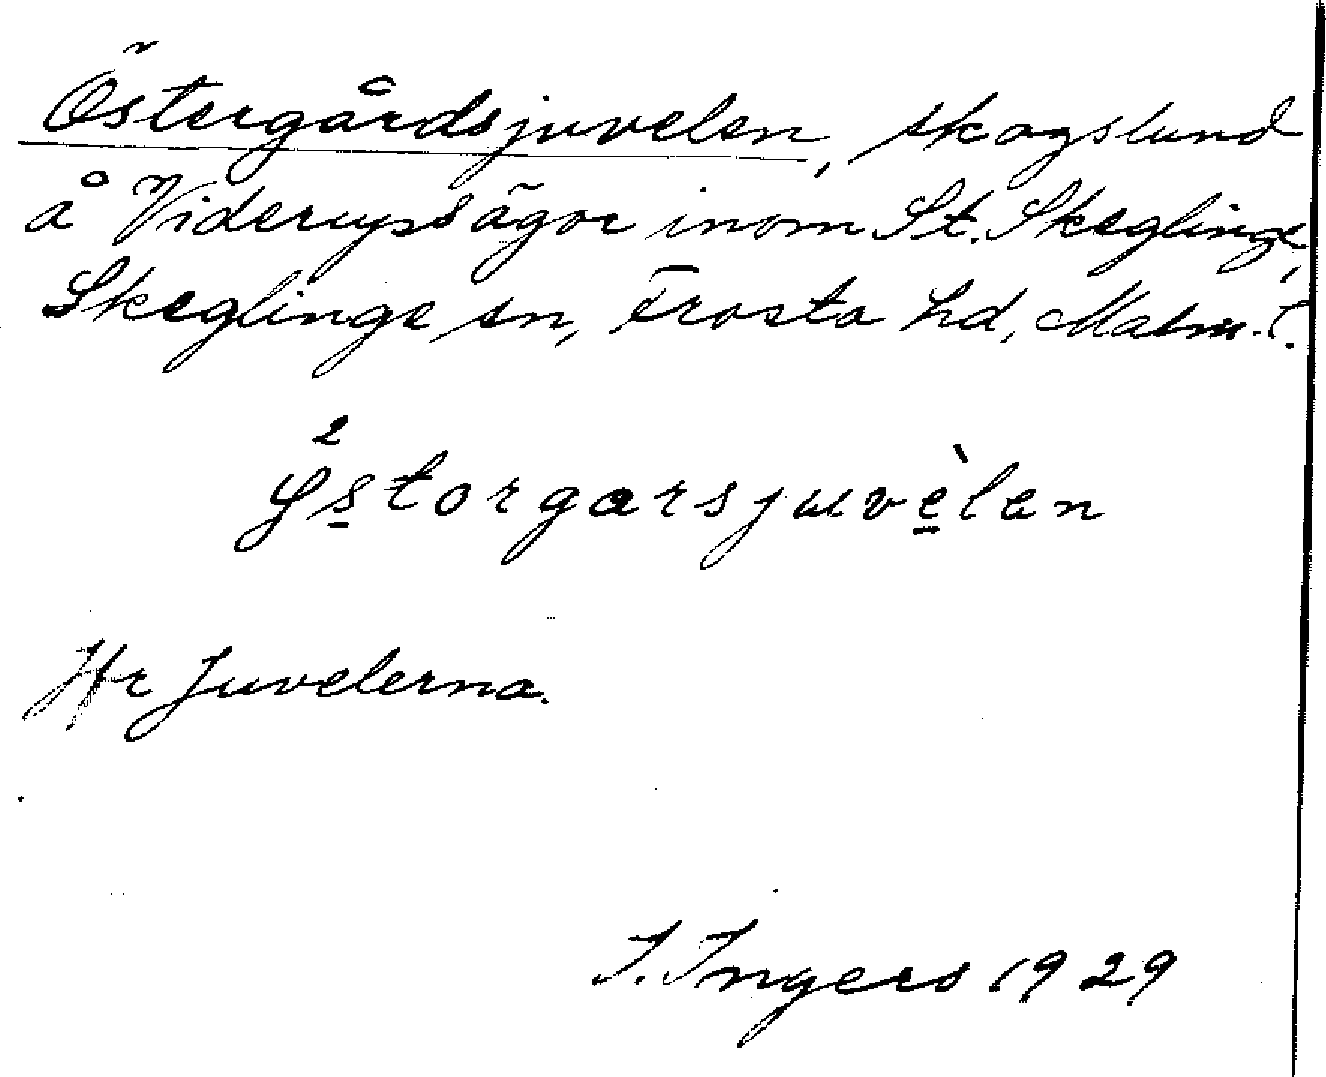 Östergårdsjuvelen, skogslund
å Viderups ägor inom St. Skeglinge,
Skeglinge sn, Frosta hd, Malm. l.
Hr Juvelerna.
I. Ingers 1929